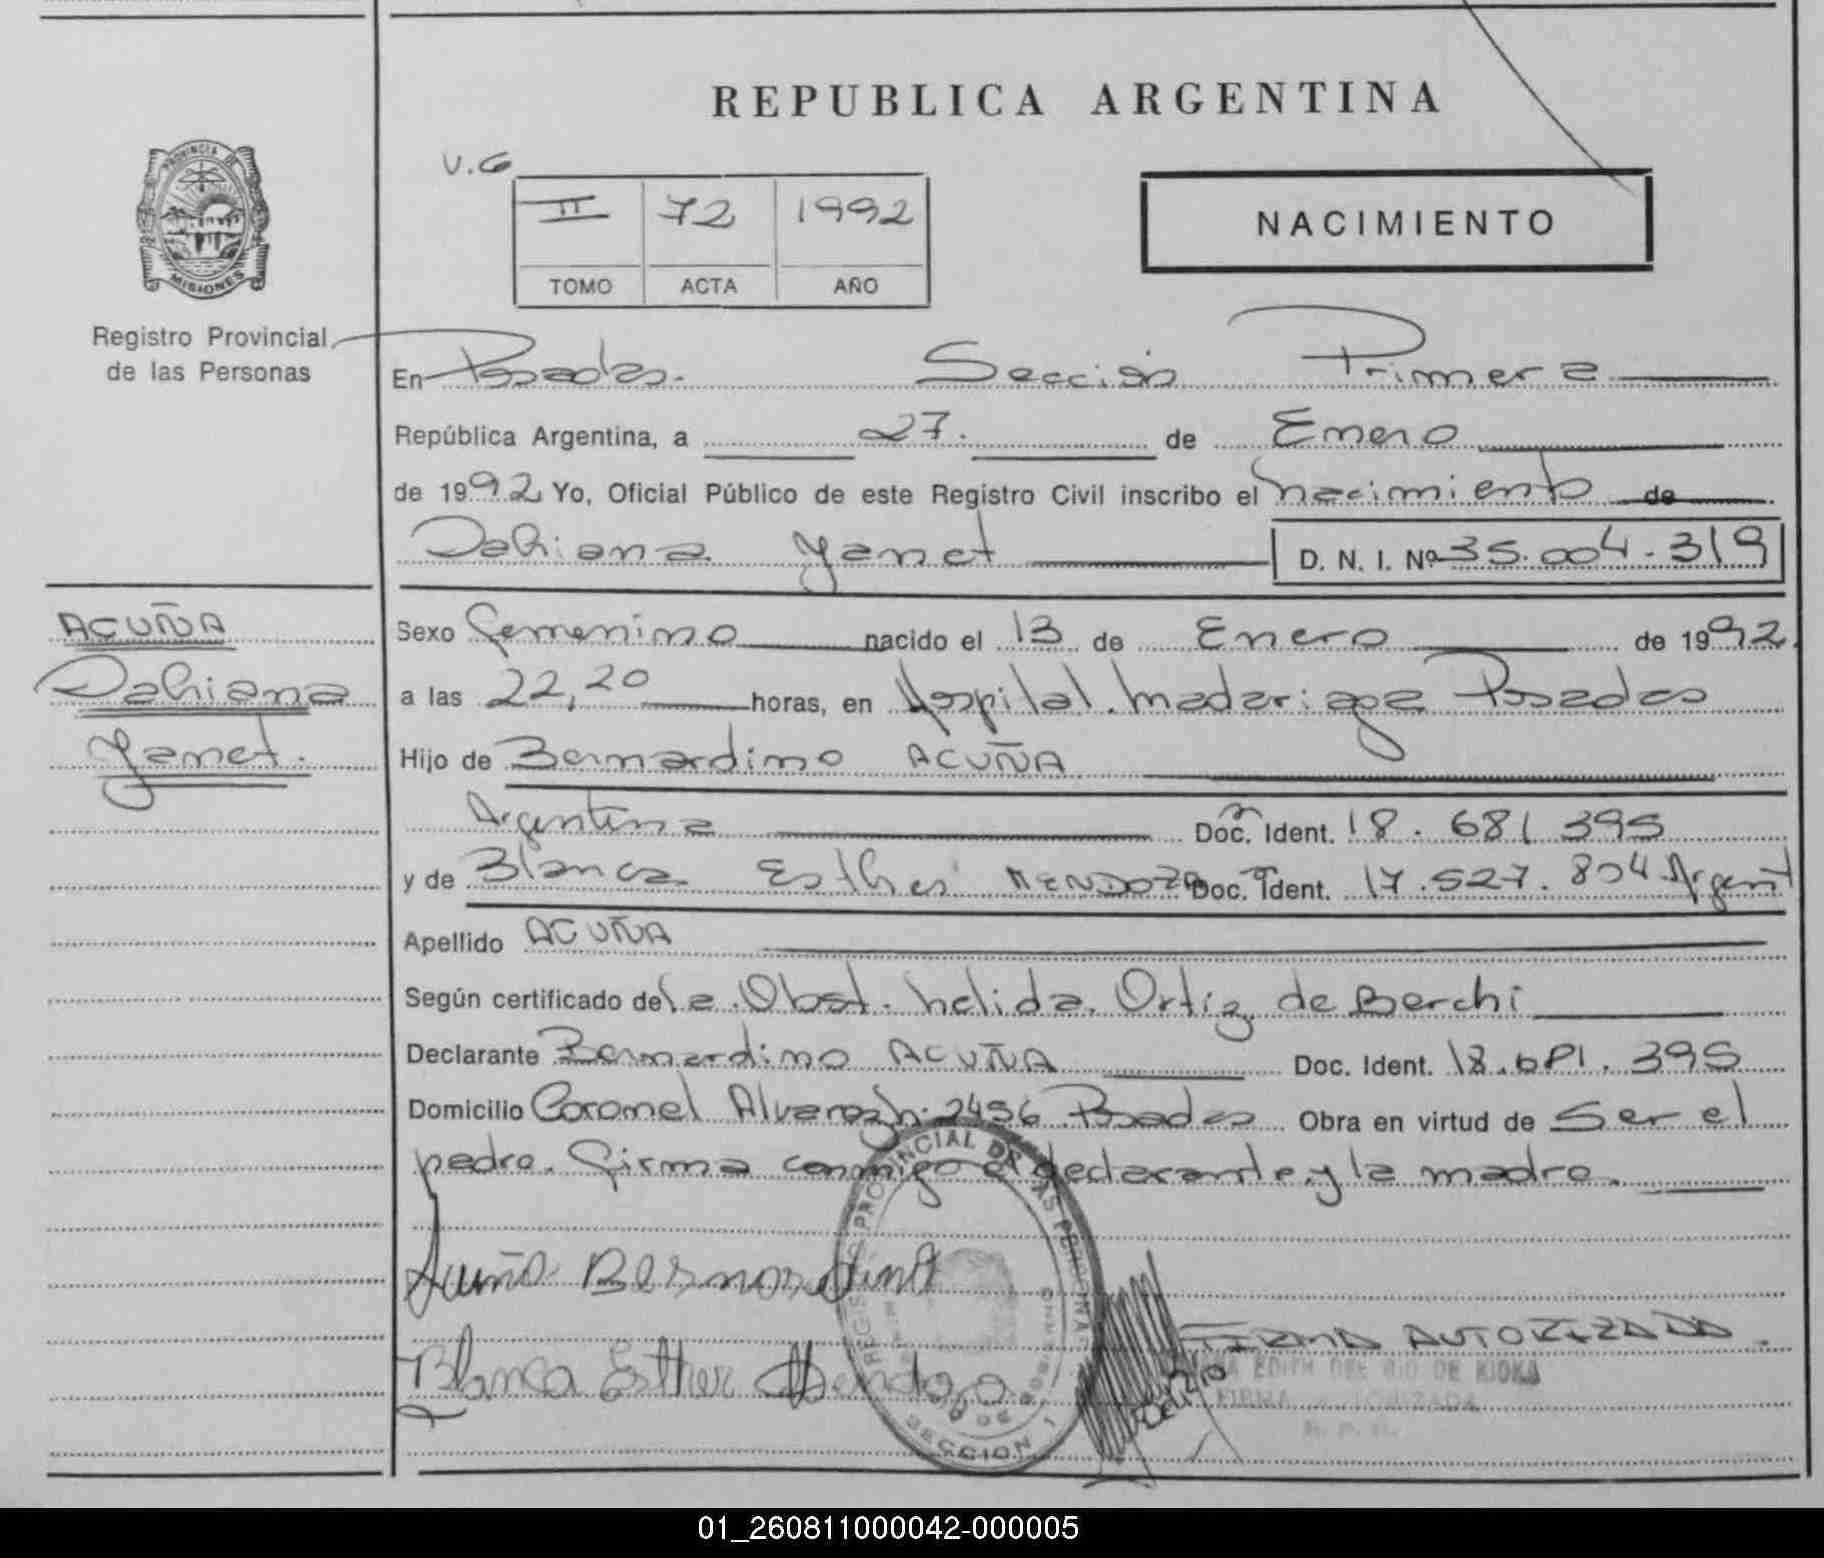 REPUBLICA ARGENTINA
PROVINCIA DE
MISIONES
Registro Provincial
de las Personas
V.G
II 72 1992
TOMO ACTA AÑO
NACIMIENTO
En Posadas. Sección Primera
República Argentina, a 27. de Enero
de 1992 Yo, Oficial Público de este Registro Civil inscribo el nacimiento de
Dahiana Yanet D. N. I. Nº 35.004.319
ACUÑA
Dahiana
Yanet.
Sexo Femenino nacido el 13 de Enero de 1992.
a las 22,20 horas, en Hospital Madariaga Posadas
Hijo de Bernardino ACUÑA
Argentina Doc. Ident. 18.681.395
y de Blanca Esther MENDOZA Doc. Ident. 17.527.804 Argent
Apellido ACUÑA
Según certificado de la Obst. Nelida Ortiz de Berchi
Declarante Bernardino ACUÑA Doc. Ident. 18.681.395
Domicilio Coronel Alvarez n. 2456 Posadas Obra en virtud de Ser el
padre. Firma conmigo el declarante y la madre.
Acuña Bernardino
Blanca Esther Mendoza
FIRMA AUTORIZADA.
EDITH DEL RIO DE KIOKA
FIRMA AUTORIZADA
SECCION 1
01_260811000042-000005